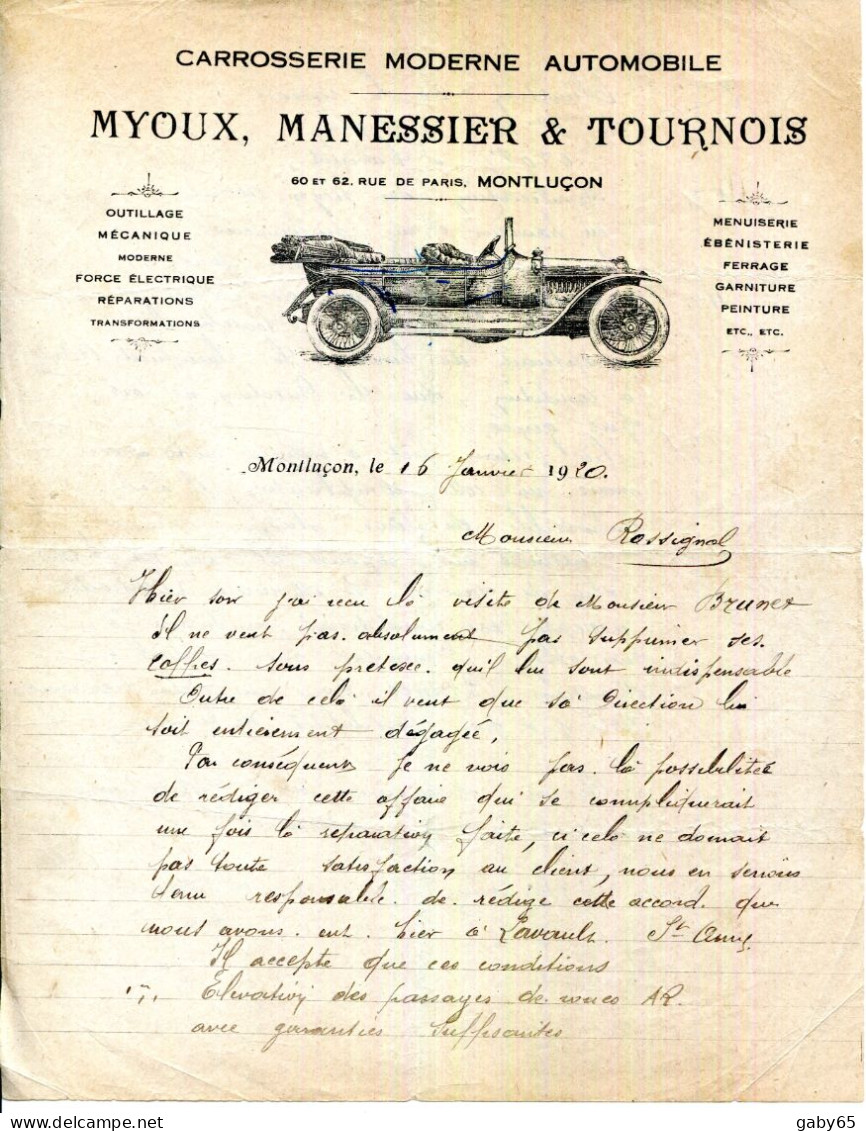 CARROSSERIE MODERNE AUTOMOBILE
MYOUX, MANESSIER & TOURNOIS
60 ET 62, RUE DE PARIS, MONTLUÇON
OUTILLAGE
MÉCANIQUE
MODERNE
FORCE ÉLECTRIQUE
RÉPARATIONS
TRANSFORMATIONS
MENUISERIE
ÉBÉNISTERIE
FERRAGE
GARNITURE
PEINTURE
ETC., ETC.
Montluçon, le 16 Janvier 1920.
Monsieur Rossignol
Hier soir j'ai recu là visite de Monsieur Brunet
il ne veut pas absolument pas supprimer ses
coffres. sous pretexte. quil lui sont indispensable
Outre de celà il veut que sà Direction lui
soit entièrement dégagée,
Par conséquent je ne vois pas. là possibilitée
de rédiger cette affaire qui se compliquerait
une fois là réparation faite, ci celà ne donnait
pas toute satisfaction au client, nous en serions
tenu responsable. de. rédige cette accord. que
nous avons. ent. hier à Lavault. St Anne
Il accepte que ces conditions
Elevation des passages de roues AR.
avec garanties suffisantes
delcampe.net
gaby65